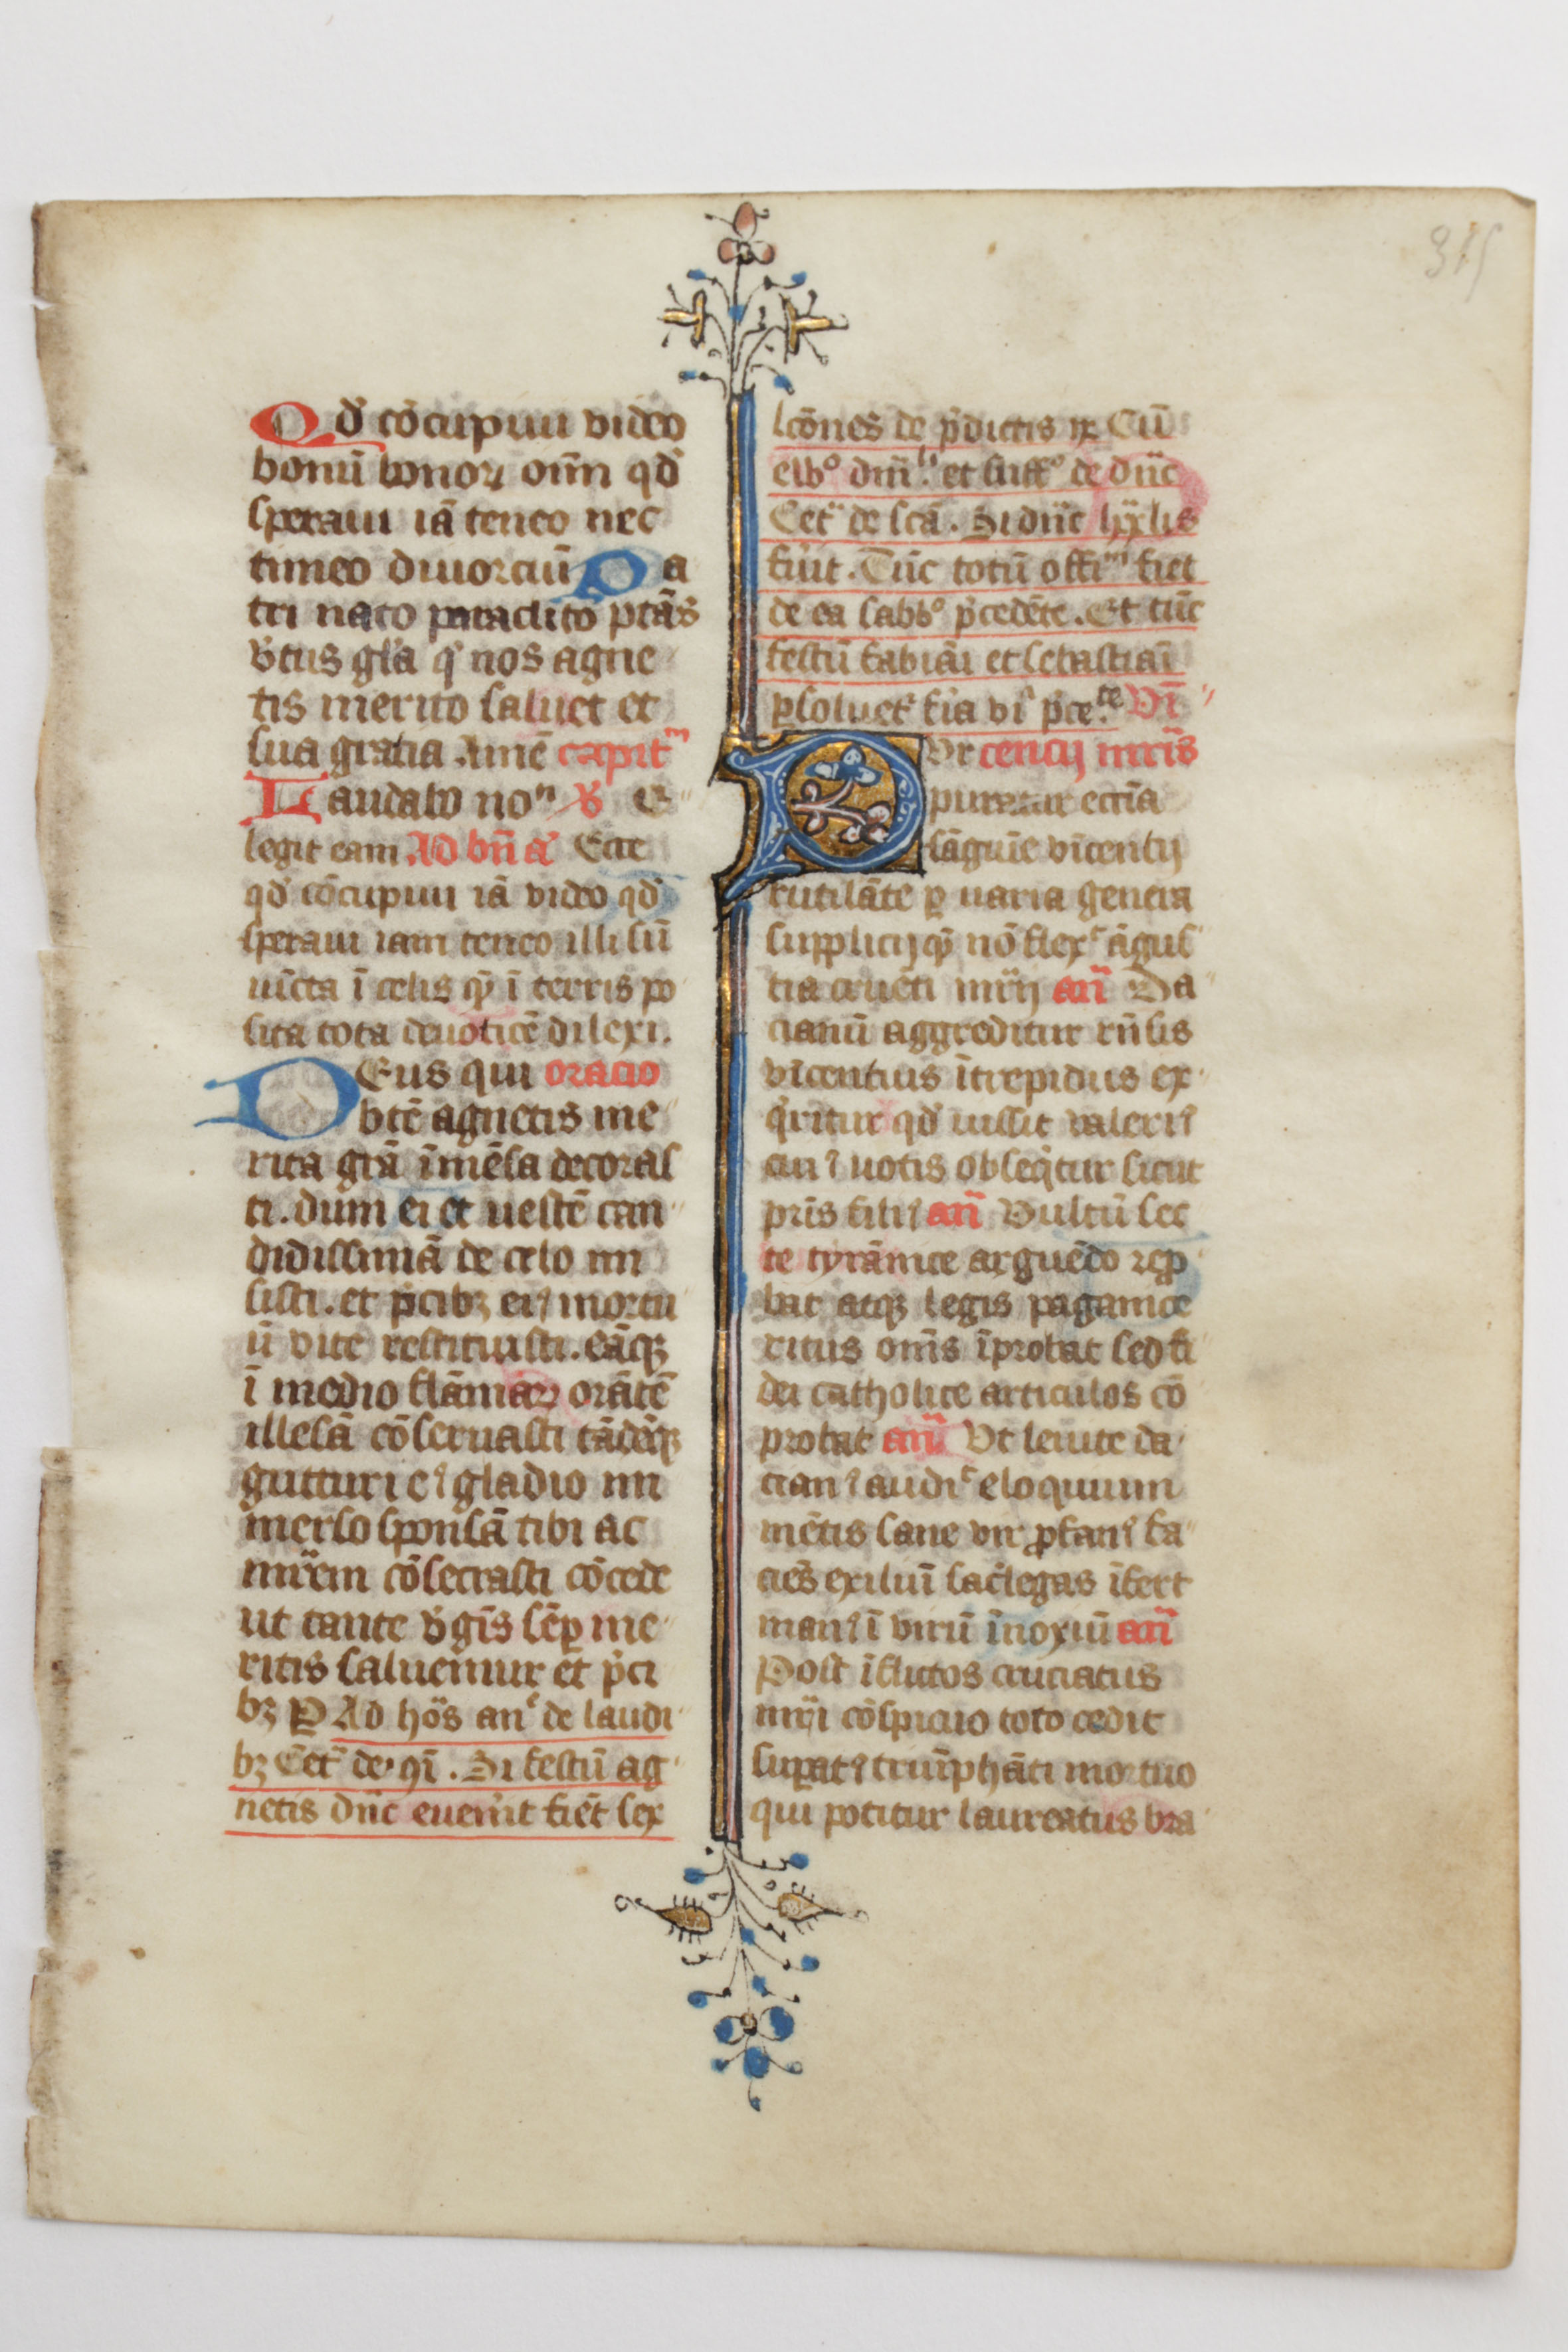 315
Qd' cōcupiui video
bonū bonoꝝ om̄n qd'
speraui iā teneo nec
timeo diuorciū Pa
tri nato paraclito
v̓tus gl'a q' nos agne
tis merito saluet et
sua gratia Amē capitᵐ
Laudabo noⁿ ℣ E
legit eam Ad bn̄ a Ecce
qd' cōcupiui iā video qd'
speraui iam teneo illi sū
iūcta ī celis qᷓ ī terris po
sita tota deuotiōē dilexi.
DEus qui oracio
btē agnetis me
rita grā īmēsa decoras
ti. dum ei et uestē can
didissimā de celo mi
sisti. et p̄cibꝫ eiꝰ mortu
ū vite restituisti. eāqꝫ
ī medio flāmaꝝ orātē
illesā cōseruasti tādēqꝫ
gutturi eꝰ gladio im
merso sponsā tibi ac
mr̄em cōsecrasti cōcede
ut tante v̓gīs sēꝑ me
ritis saluemur et p̄ci
bꝫ P Ad hōs anᵉ de laudi
bꝫ Cet̄ de ꝯī. Si festū ag
netis dn̄c euen'it fiēt lex
lcōnes de p̄dictis ix Cū
eibº dm̄ᵗⁱ et suffº de dn̄c
Cet̄ de scā. Si dn̄c lxxˡⁱˢ
fu'it. Tūc totū offīᵐ fiet
de ea sabbº p̄cedēte. Et tūc
festū fabiāi et sebastiaī
ꝑsoluet' fi'a viᵃ p̄ceᵗᵉ Vī
PUr cencij mr̄is
puratur ecc'ia
sāguīe vīcentij
rutilāte ꝑ uaria genera
supplicij qᷓ nō flexᵗ āgus
tia cruēti mr̄ij an̄ Da
cianū aggreditur
vīcentius ītrepidus ex
q'ritur qd' iussit valeriꝰ
cuiꝰ uotis obseq'tur sicut
pr̄is filiꝰ an̄ Vultū sec
te tyrānice arguēdo
bat atqꝫ legis paganice
ritus om̄s īprobat sed fi
dei catholice articulos cō
probat an̄ Vt leuite da
cianꝰ audiᵗ eloquium
mētis sane vir ꝓfanꝰ fa
ciēs exiliū sac'legas īfert
manꝰ ī virū īnoxiū an̄
Post īflictos cruciatus
mr̄i cōspicuo toto cedit
suꝑatꝰ triūphāti mortuo
qui potitur laureatus bra